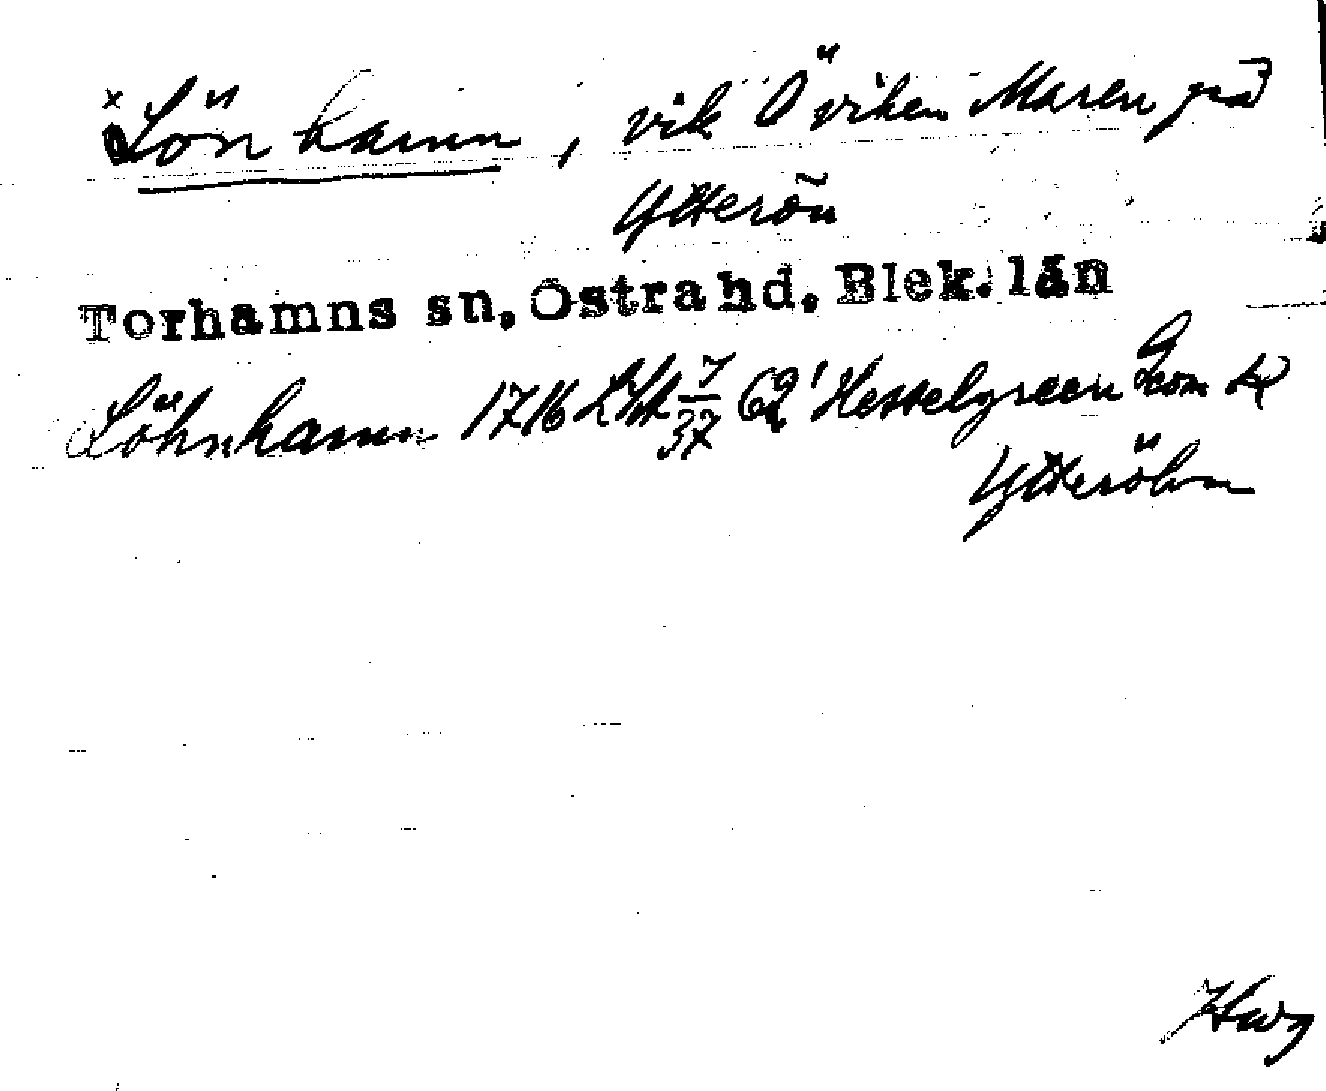 × Lönhamn, vik Ö viken Maren på
Ytterön
Torhamns sn, Östra hd, Blek. län
Löhnhamn 1716 7/37 62¹ Hesselgreen Geom
Ytteröhn